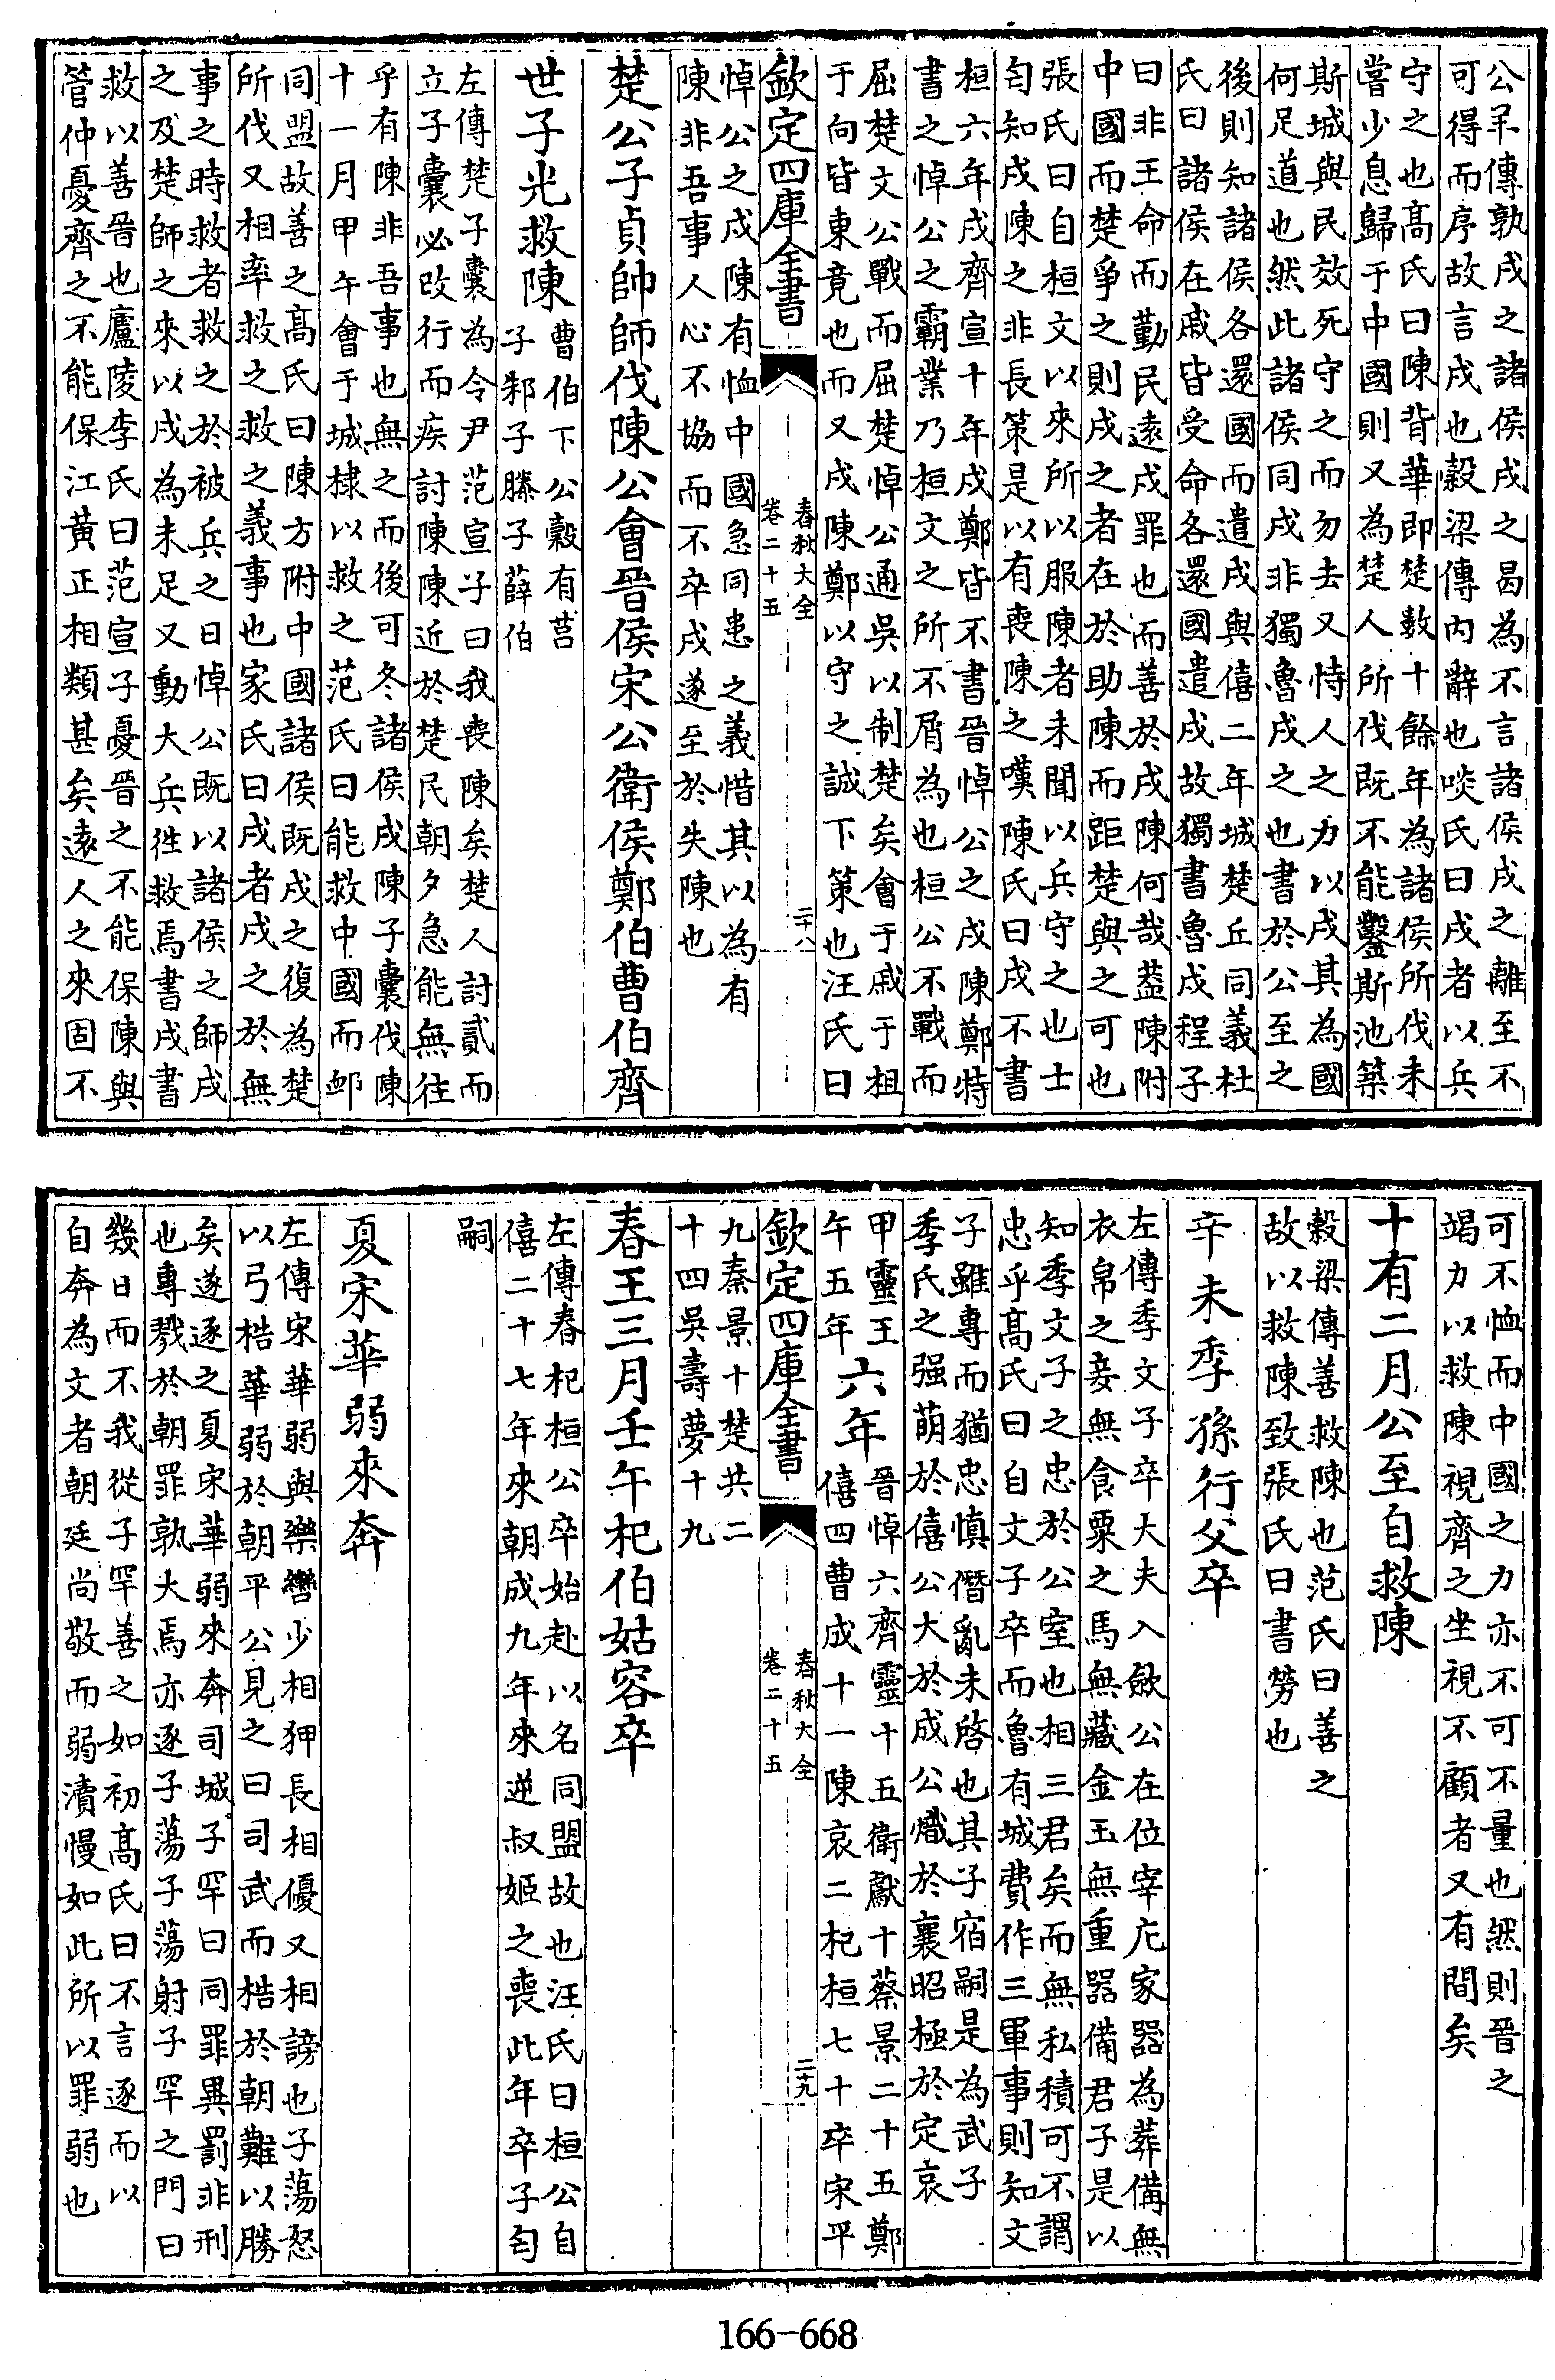 公羊傳孰戍之諸侯戍之曷為不言諸侯戍之離至不
可得而序故言戍也糓梁傳内辭也啖氏曰戍者以兵
守之也髙氏曰陳背華即楚數十餘年為諸侯所伐未
嘗少息歸于中國則又為楚人所伐既不能鑿斯池築
斯城與民效死守之而勿去又恃人之力以戍其為國
何足道也然此諸侯同戍非獨魯戍之也書於公至之
後則知諸侯各還國而遣戍與僖二年城楚丘同義杜
氏曰諸侯在戚皆受命各還國遣戍故獨書魯戍程子
曰非王命而勤民逺戍罪也而善於戍陳何哉葢陳附
中國而楚爭之則戍之者在於助陳而距楚與之可也
張氏曰自桓文以來所以服陳者未聞以兵守之也士
匄知戍陳之非長策是以有喪陳之嘆陳氏曰戍不書
桓六年戍齊宣十年戍鄭皆不書晉悼公之戍陳鄭特
書之悼公之霸業乃桓文之所不屑為也桓公不戰而
屈楚文公戰而屈楚悼公通吳以制楚矣會于戚于柤
于向皆東竟也而又戍陳鄭以守之誠下策也汪氏曰
欽定四庫全書
春秋大全
卷二十五
二十八
悼公之戍陳有恤中國急同患之義惜其以為有
陳非吾事人心不協而不卒戍遂至於失陳也
楚公子貞帥師伐陳公會晉侯宋公衛侯鄭伯曹伯齊
世子光救陳
曹伯下公糓有莒
子邾子滕子薛伯
左傳楚子囊為令尹范宣子曰我喪陳矣楚人討貳而
立子囊必改行而疾討陳陳近於楚民朝夕急能無往
乎有陳非吾事也無之而後可冬諸侯戍陳子囊伐陳
十一月甲午會于城棣以救之范氏曰能救中國而䘏
同盟故善之髙氏曰陳方附中國諸侯既戍之復為楚
所伐又相率救之救之義事也家氏曰戍者戍之於無
事之時救者救之於被兵之日悼公既以諸侯之師戍
之及楚師之來以戍為未足又動大兵徃救焉書戍書
救以善晉也廬陵李氏曰范宣子憂晉之不能保陳與
管仲憂齊之不能保江黄正相類甚矣逺人之來固不
可不恤而中國之力亦不可不量也然則晉之
竭力以救陳視齊之坐視不顧者又有間矣
十有二月公至自救陳
糓梁傳善救陳也范氏曰善之
故以救陳致張氏曰書勞也
辛未季孫行父卒
左傳季文子卒大夫入歛公在位宰庀家器為葬備無
衣帛之妾無食粟之馬無藏金玉無重器備君子是以
知季文子之忠於公室也相三君矣而無私積可不謂
忠乎髙氏曰自文子卒而魯有城費作三軍事則知文
子雖專而猶忠慎僭亂未啓也其子宿嗣是為武子
季氏之强萌於僖公大於成公熾於襄昭極於定哀
甲靈王
午五年
六年
晉悼六齊靈十五衛獻十蔡景二十五鄭
僖四曹成十一陳哀二杞桓七十卒宋平
欽定四庫全書
春秋大全
卷二十五
二十九
九秦景十楚共二
十四吳壽夢十九
春王三月壬午杞伯姑容卒
左傳春杞桓公卒始赴以名同盟故也汪氏曰桓公自
僖二十七年來朝成九年來逆叔姬之喪此年卒子匄
嗣
夏宋華弱來奔
左傳宋華弱與樂轡少相狎長相優又相謗也子蕩怒
以弓梏華弱於朝平公見之曰司武而梏於朝難以勝
矣遂逐之夏宋華弱來奔司城子罕曰同罪異罰非刑
也專戮於朝罪孰大焉亦逐子蕩子蕩射子罕之門曰
幾日而不我從子罕善之如初髙氏曰不言逐而以
自奔為文者朝廷尚敬而弱瀆慢如此所以罪弱也
166-668